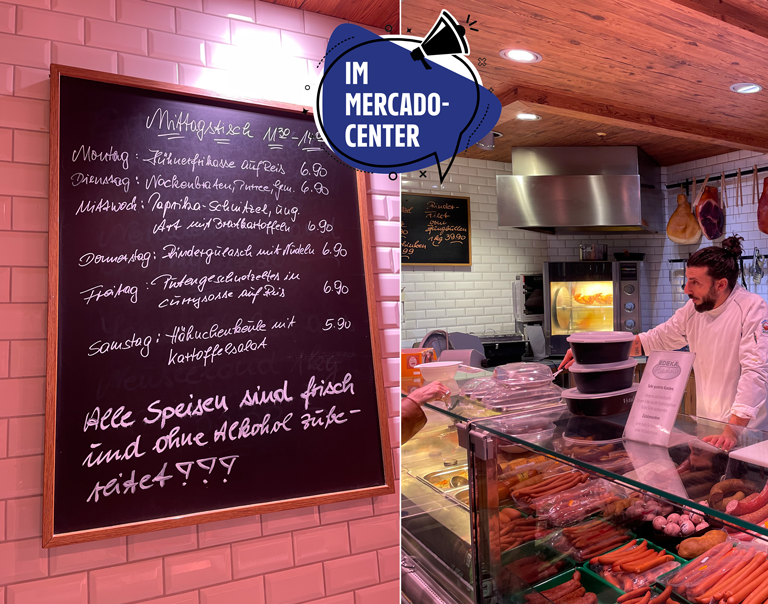 IM
MERCADO-
CENTER
Mittagstisch 11³⁰ - 14
Montag: Hühnerfrikasse auf Reis 6.90
Dienstag: Nackenbraten, Püree, Gem. 6.90
Mittwoch: Paprika-Schnitzel, ung
Art mit Bratkartoffeln 6.90
Donnerstag: Rindergulasch mit Nudeln 6.90
Freitag: Putengeschnetzeltes in
Currysosse auf Reis 6.90
Samstag: Hähnchenkeule mit 5.90
Kartoffelsalat
Alle Speisen sind frisch
und ohne Alkohol zube-
reitet!!!
Rinder-
filet
vom
Jungbullen
1kg 39.90
EDEKA